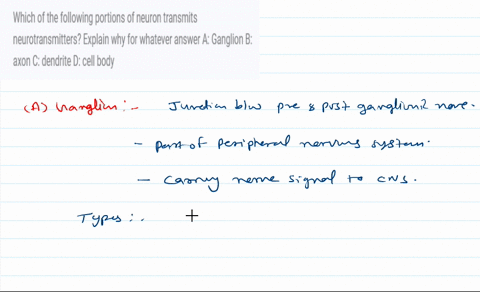 Which of the following portions of neuron transmits
neurotransmitters? Explain why for whatever answer A: Ganglion B:
axon C: dendrite D: cell body
(A) Ganglion :- Junction b/w pre & post ganglionic nerve.
- part of peripheral nervous system.
- Carry nerve signal to CNS.
Types :.